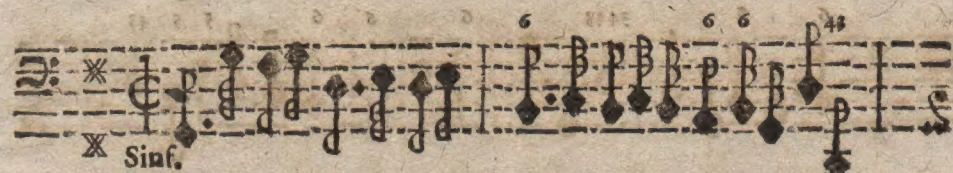 6 6 6 43
Sinf.